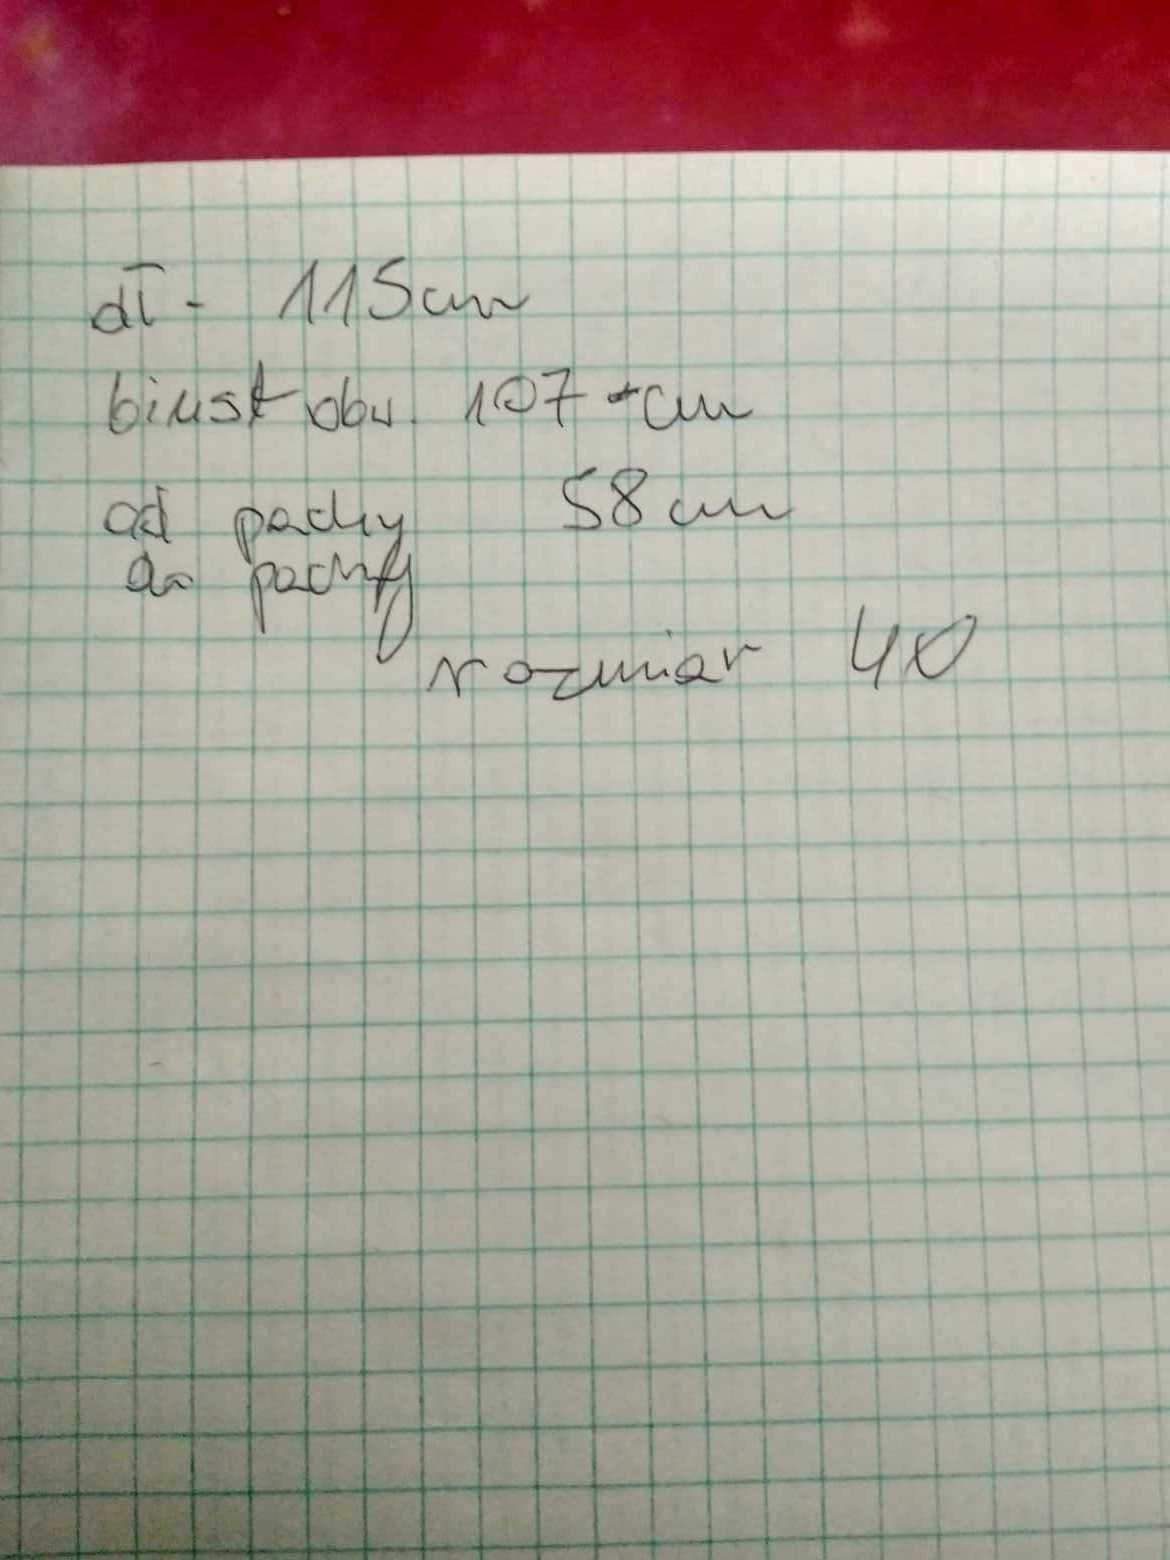 dł - 115cm
biust obw. 107 cm
od pachy 58cm
do pachy
rozmiar 40